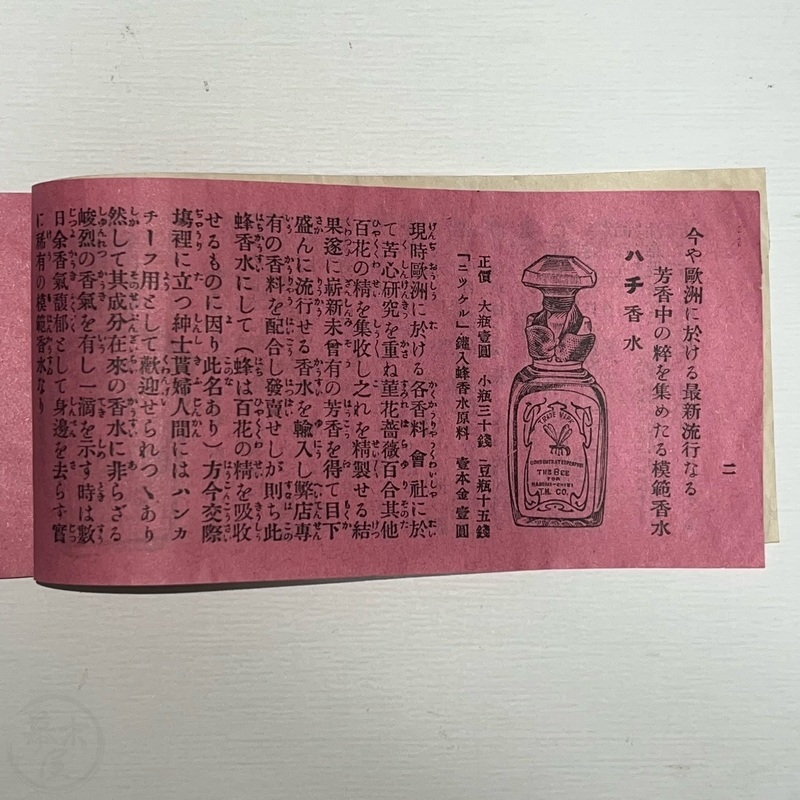 二
今や歐洲に於ける最新流行なる
芳香中の粹を集めたる模範香水
ハチ香水
TRADE MARK
CONCENTRATED PERFUME
THE BEE
FOR
HANDKERCHIEF
T.H. CO.
正價 大瓶壹圓 小瓶三十錢 豆瓶十五錢
「ニツケル」鑵入蜂香水原料 壹本金壹圓
現時歐洲に於ける各香料會社に於
て苦心研究を重ね菫花薔薇百合其他
百花の精を集收し之れを精製せる結
果遂に嶄新未曾有の芳香を得て目下
盛んに流行せる香水を輸入し弊店專
有の香料を配合し發賣せしが則ち此
蜂香水にして(蜂は百花の精を吸收
せるものに因り此名あり)方今交際
塲裡に立つ紳士貴婦人間にはハンカ
チーフ用として歡迎せられつゝあり
然して其成分在來の香水に非らざる
峻烈の香氣を有し一滴を示す時は數
日余香氣馥郁として身邊を去らず實
に稀有の模範香水なり